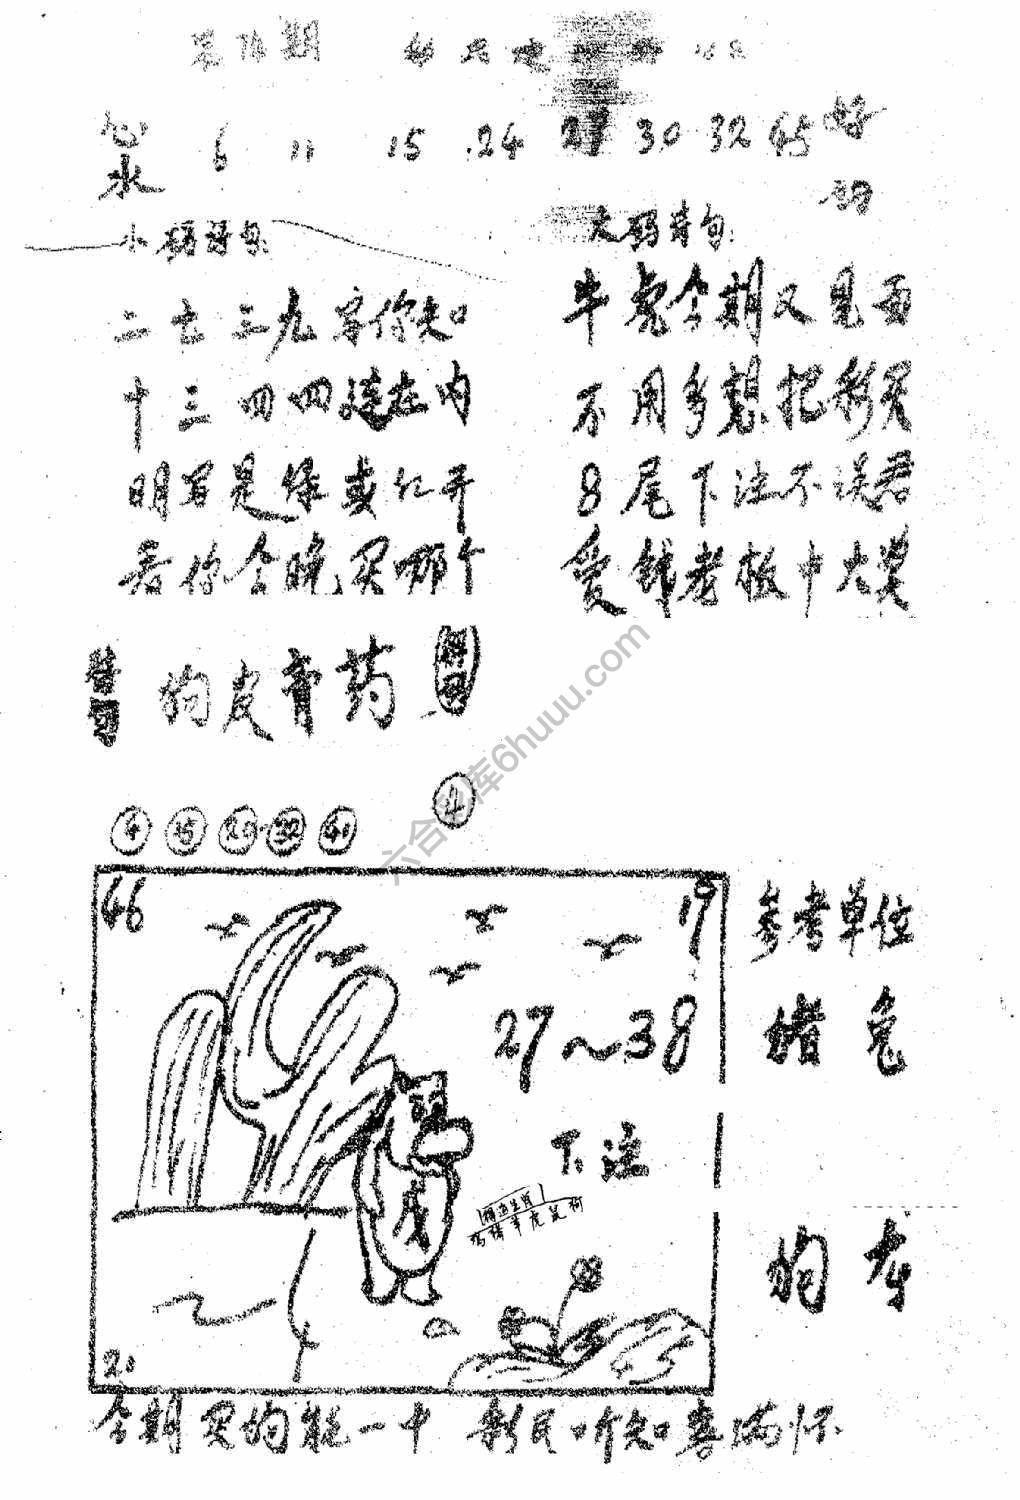 心水 6 11 15 .24 27 30 32 45 好
小码诗句:
大码诗句:
二七三九字你知
十三四四连在内
明君是绿或红开
看你今晚买哪个
牛兔今期又见面
不用多想把彩买
8尾下注不误君
爱钱老板中大奖
狗皮膏药
4 15 32 41
46
19
27~38
下注
20
参考单位
猪 兔
狗
六合 库6huuu.com
今期买的能一中 彩民听知喜满怀